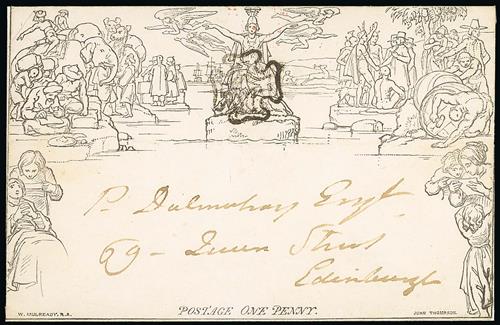 P. Dalmahoy Esqr
69 - Queen Street
Edinburgh
POSTAGE ONE PENNY.
W. MULREADY, R.A.
JOHN THOMPSON.